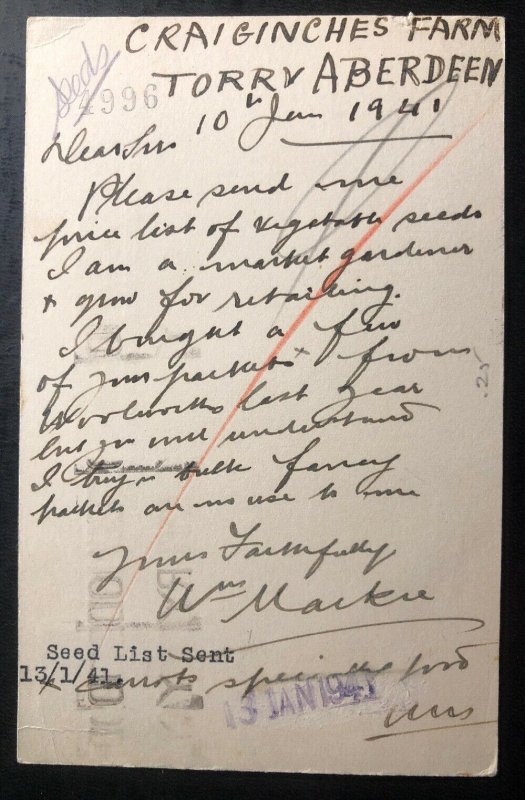 CRAIGINCHES FARM
TORRY ABERDEEN
Seeds
4996
10th Jan 1941
Dear Sirs
Please send me
price list of vegetable seeds
I am a market gardener
& grow for retailing.
I bought a few
of your packets x from
Woolworths last year
but you will understand
I buy in bulk fancy
packets are no use to me
Yours Faithfully
Wm Mackie
Seed List Sent
13/1/41.
x Carrots specially good
13 JAN 1941
.25